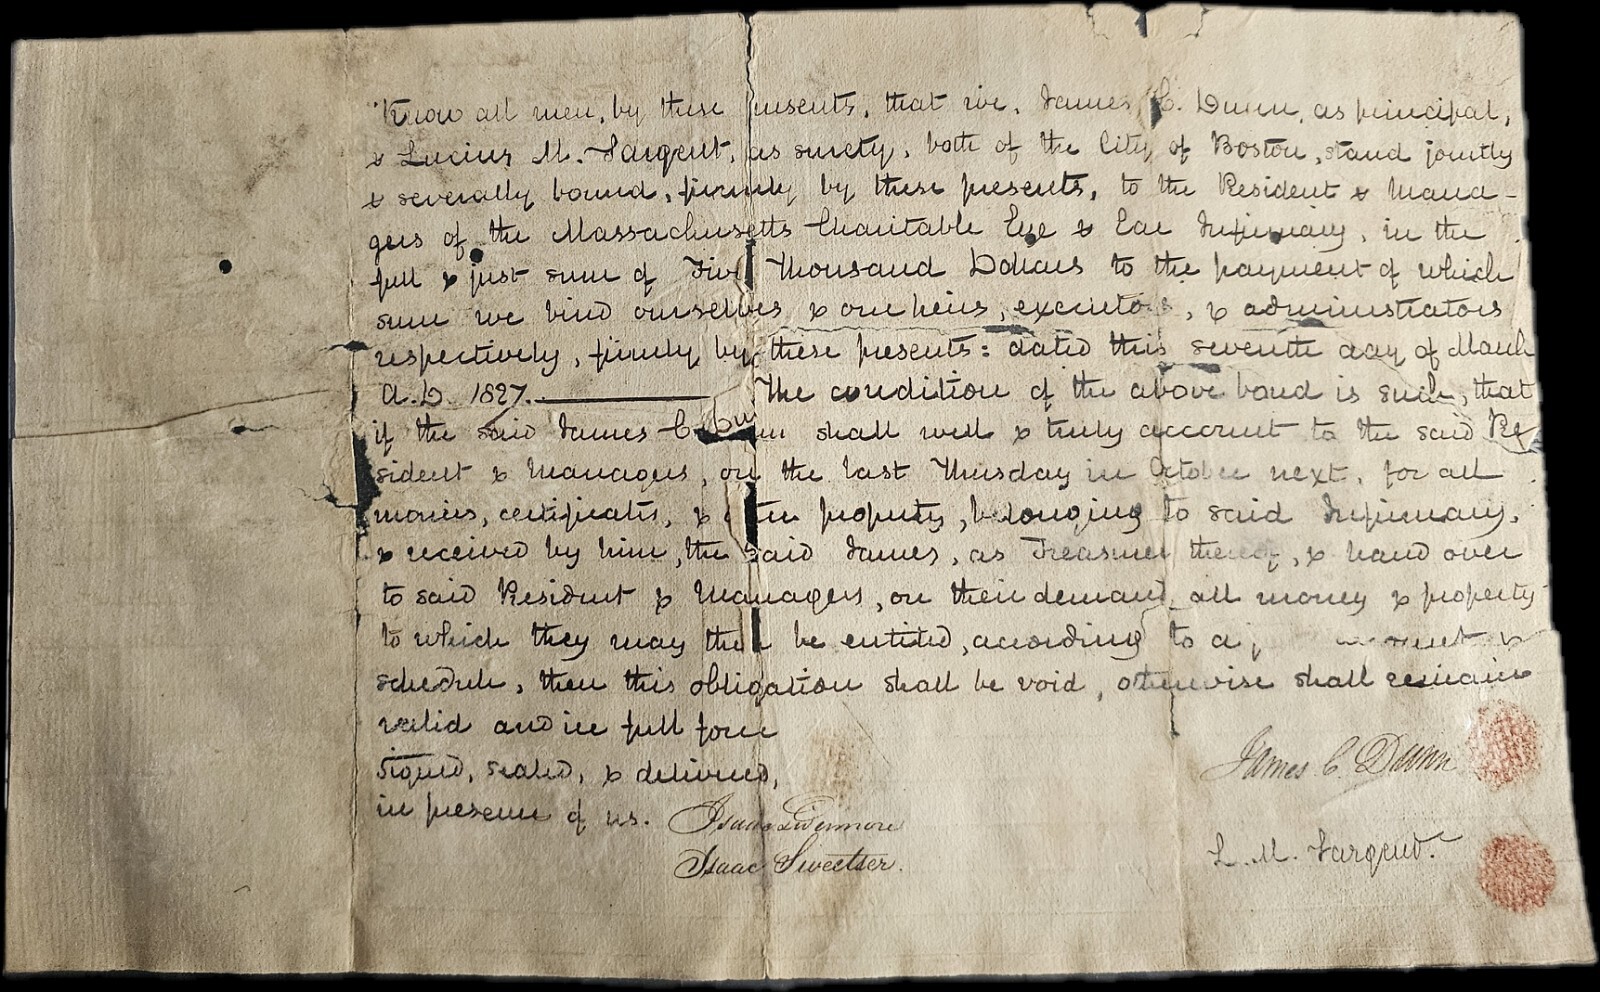 Know all men, by these presents, that we, James C. Dunn, as principal,
& Lucius M. Sargent, as surety, both of the City of Boston, stand jointly
& severally bound, firmly by these presents, to the President & Mana-
gers of the Massachusetts Charitable Eye & Ear Infirmary, in the
full & just sum of Five Thousand Dollars to the payment of which
sum we bind ourselves & our heirs, executors, & administrators
respectively, firmly by these presents: dated this seventh day of March
A.D. 1827. The condition of the above bond is such, that
if the said James C. Dunn shall well & truly account to the said Pre
sident & Managers, on the last Thursday in October next, for all
monies, certificates, & other property, belonging to said Infirmary,
& received by him, the said James, as Treasurer thereof, & hand over
to said President & Managers, on their demand, all money & property
to which they may then be entitled, according to &
schedule, then this obligation shall be void, otherwise shall remain
valid and in full force
Signed, sealed, & delivered,
in presence of us.
Isaac Livermore
Isaac Sweetser.
James C. Dunn
L. M. Sargent.